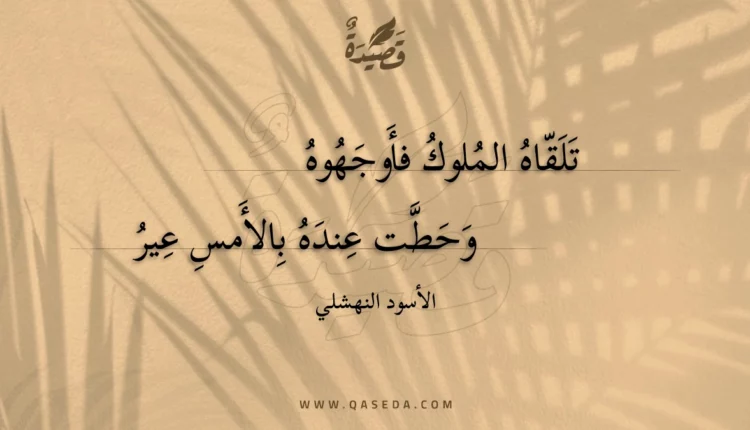 قَصِيدَةٌ
تَلَقّاهُ المُلوكُ فأَوجَهُوهُ
وَحَطَّت عِندَهُ بِالأَمسِ عِيرُ
الأسود النهشلي
WWW.QASEDA.COM